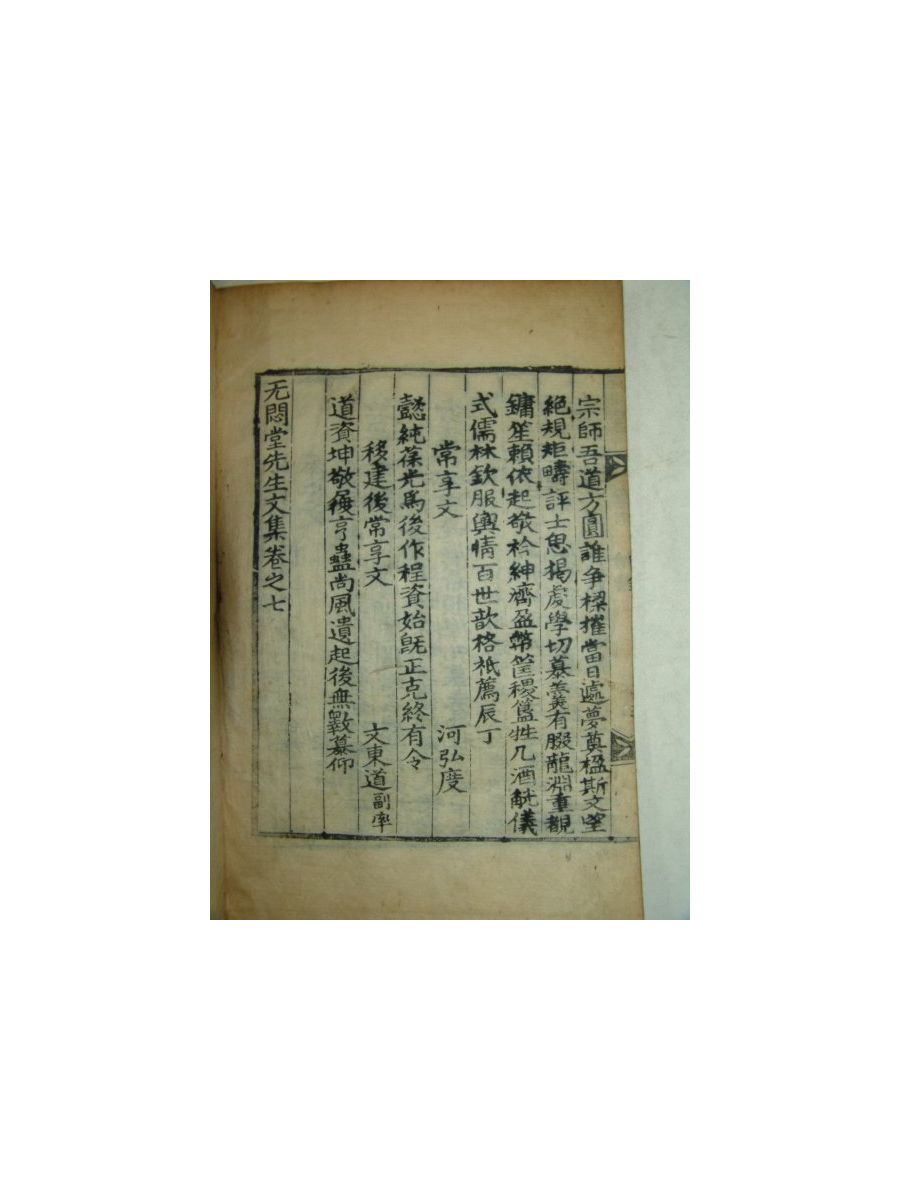 宗師吾道方圓誰争樑摧當日遽夢奠楹斯文墜
絶規矩疇評士思揭虔學切慕羹有腏龍淵重觀
鏞笙賴依起敬衿紳濟盈幣筐稷簋牲几酒觥儀
式儒林欽服輿情百世歆格祗薦辰丁
常享文 河弘度
懿純葆光為後作程資始旣正克終有令
移建後常享文 文東道副率
道資坤敬履亨蠱尚風遺起後無斁慕仰
无悶堂先生文集卷之七